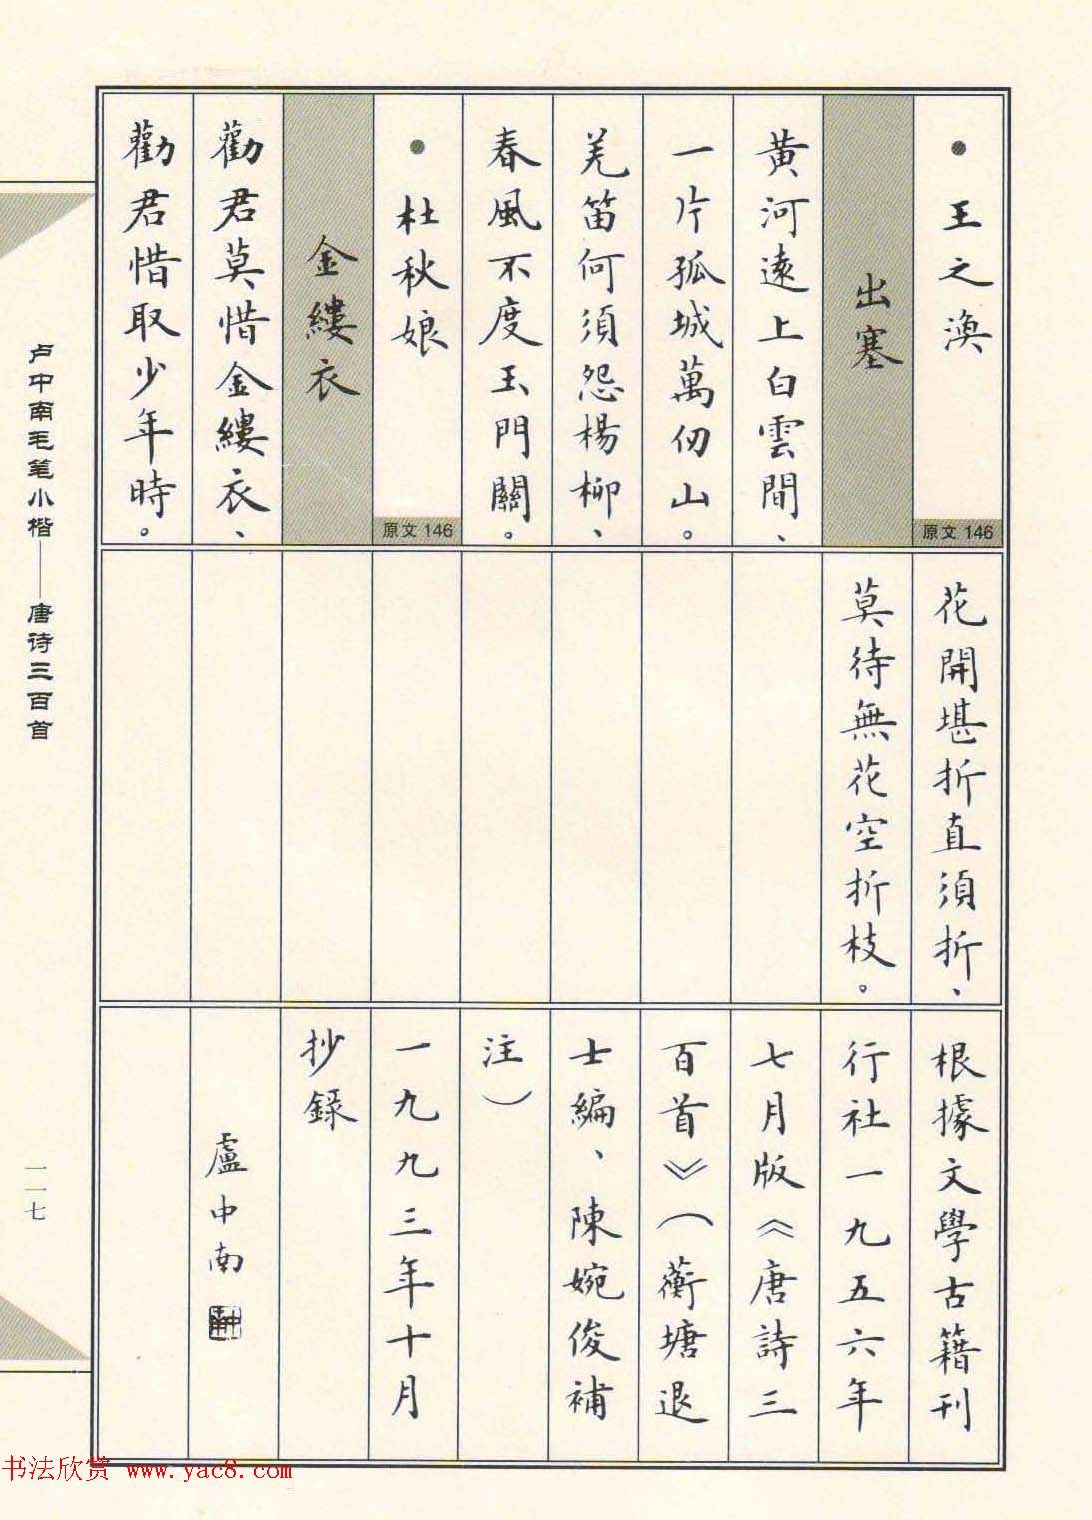 •王之渙
原文146
出塞
黄河遠上白雲間、
一片孤城萬仞山。
羌笛何須怨楊柳、
春風不度玉門關。
•杜秋娘
原文146
金縷衣
勸君莫惜金縷衣、
勸君惜取少年時。
花開堪折直須折、
莫待無花空折枝。
根據文學古籍刊
行社一九五六年
七月版《唐詩三
百首》（蘅塘退
士編、陳婉俊補
注）
一九九三年十月
抄録
盧中南
卢中南毛笔小楷——唐诗三百首
一一七
书法欣赏 www.yac8.com